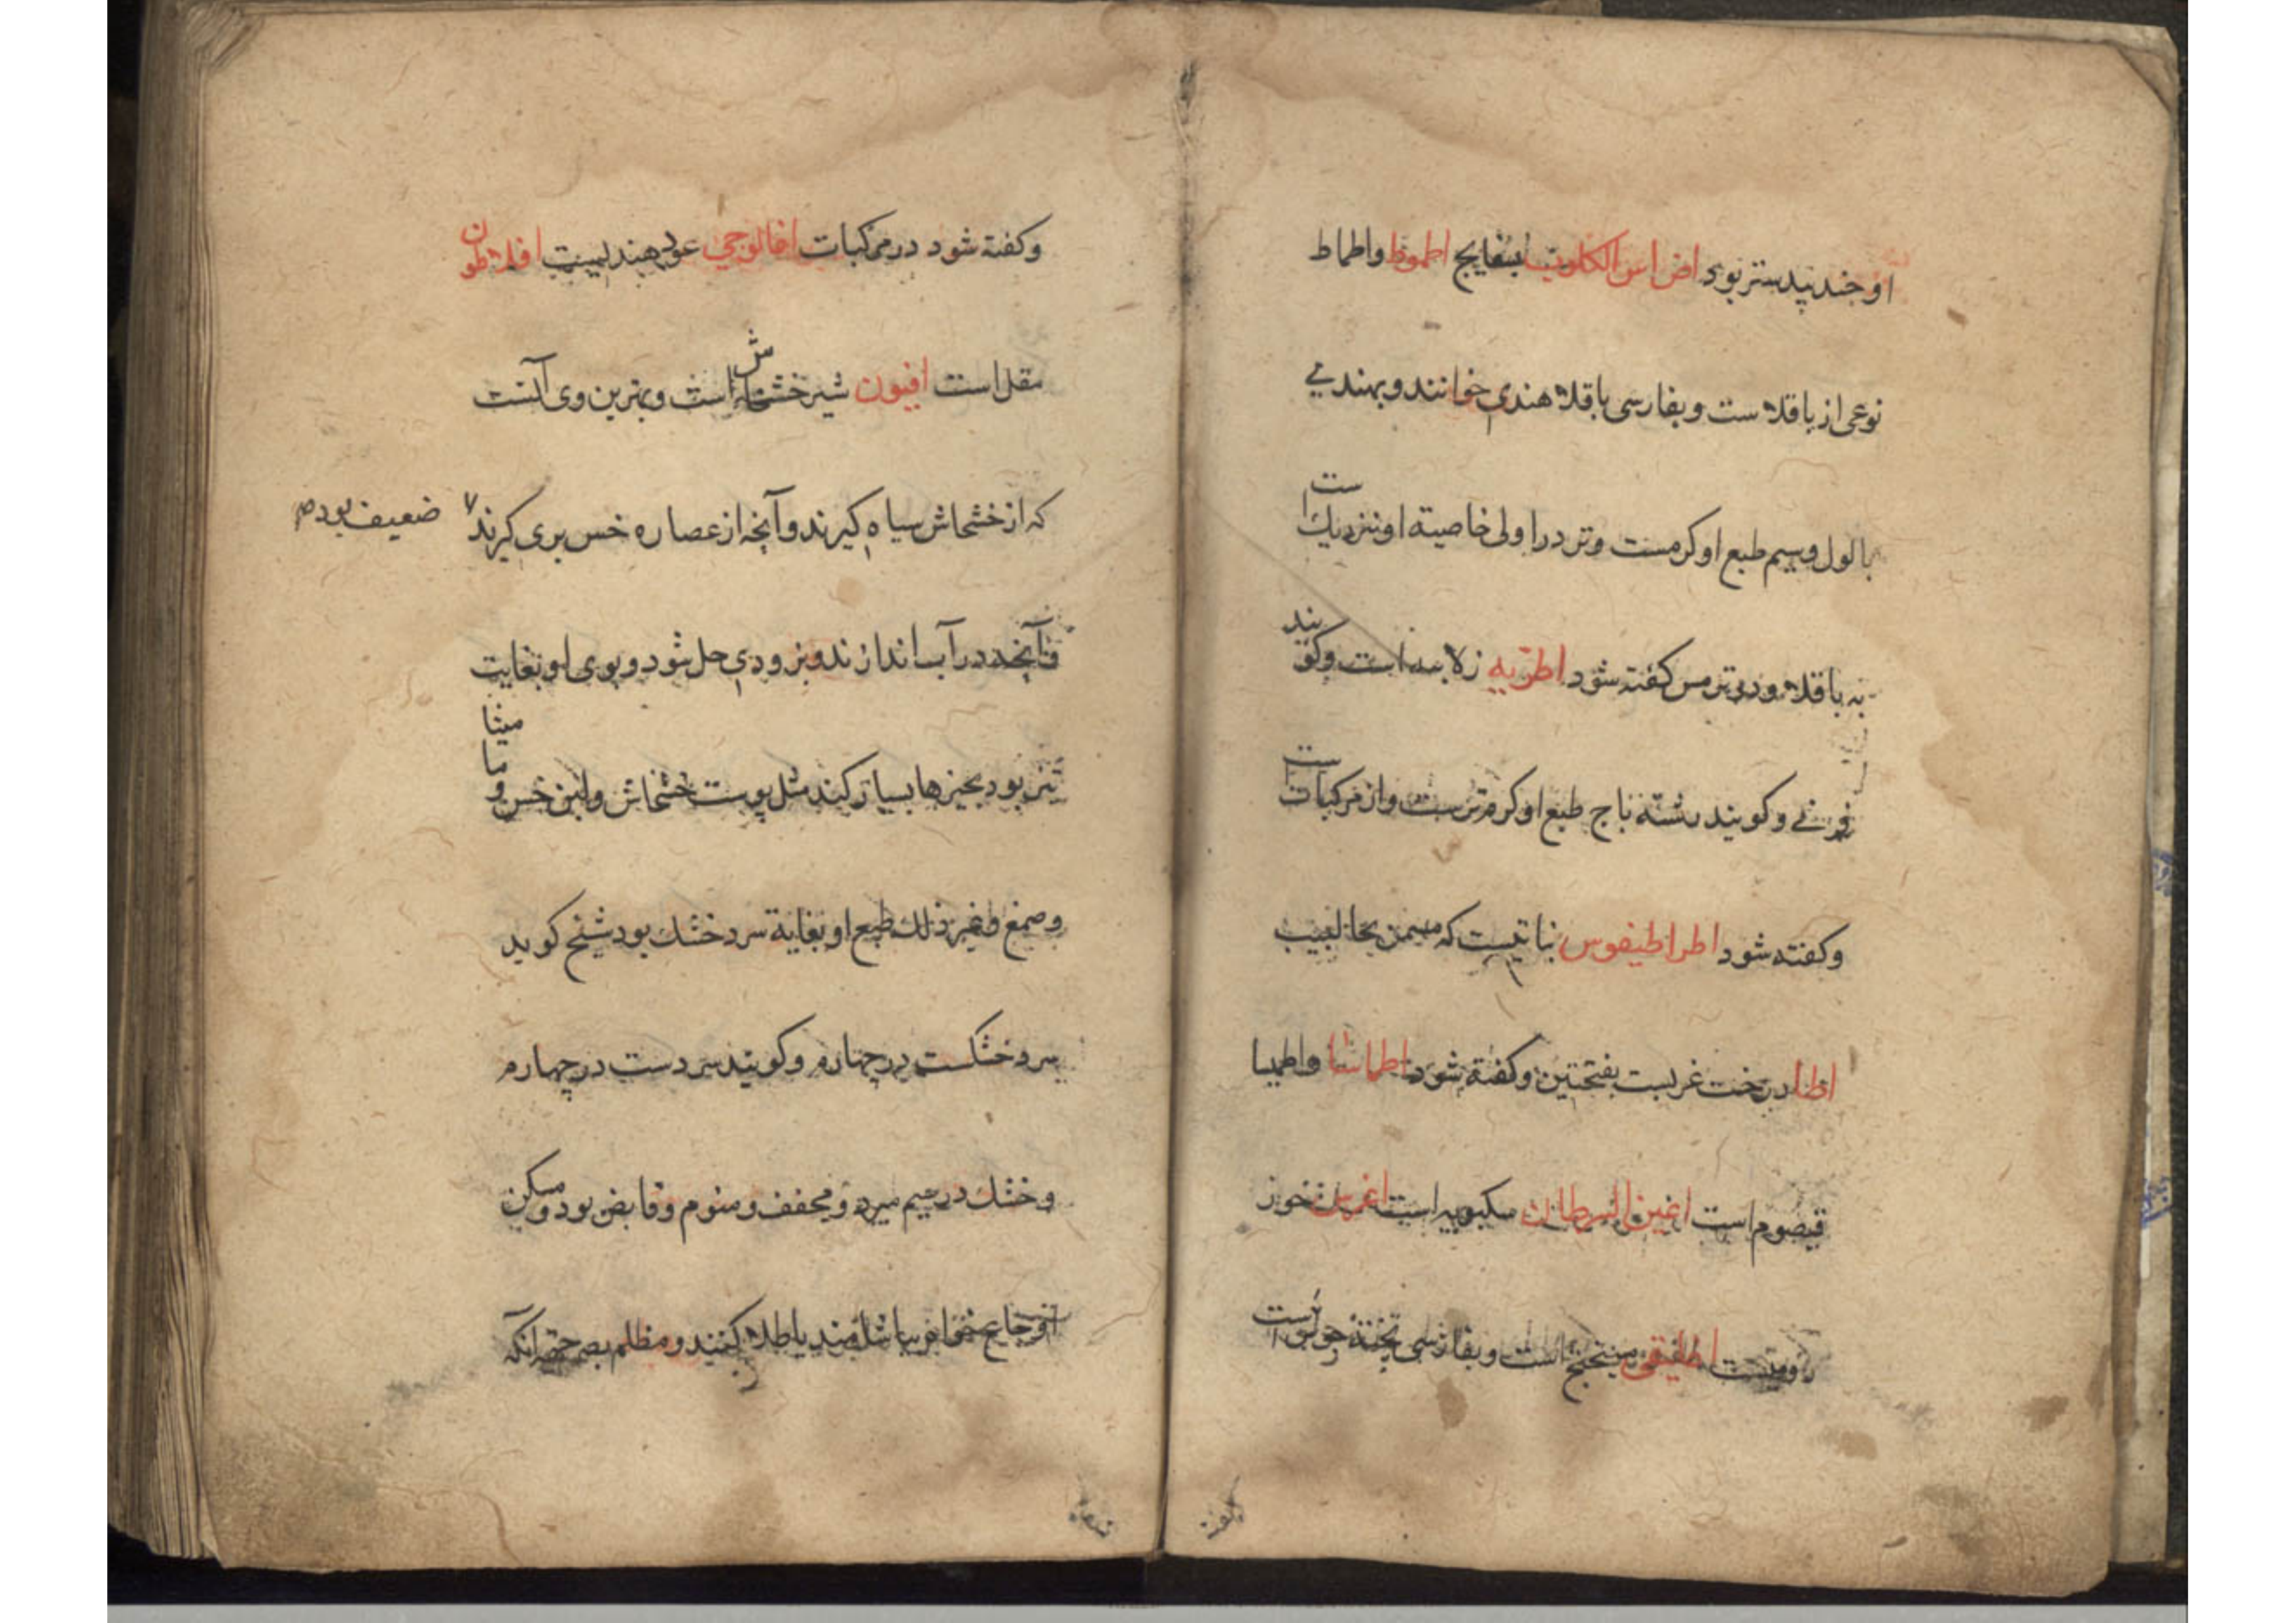 او جندبیدستر بود اضراس الکلوب بسفایج اطموط واطماط
نوعی از باقلاست و بفارسی باقلاء هندی خوانند و بهندی
بالول وسیم طبع او کرمست وتر در اولی خاصیته او نزدیك است
به باقلا و در ترمس کفته شود اطریه زلابیه است وکویند
فرنی وکویند رشته ناج طبع او کرم ترست واز مرکبات است
وکفته شود اطراطیفوس نباتیست که مسمن بحالبیب
اطا درخت غربست بفتحتین وکفته شود اطماشا واطمیا
قیصوم است اغین السرطان سکبویه است اغرس خوز
رومیست اطفیقی میبختج است وبفارسی پخته جوش است
وکفته شود در مرکبات اغالوجی عود هندیست افلاطون
مقل است افیون شیر خشخاش است وبهترین وی آنست
که از خشخاش سیاه کیرند وآنچه از عصاره خس بری کیرند ضعیف بود
وآنچه در آب اندازند وبزودی حل شود وبوی او بغایت
تیز بود بچیزها بسیار کنند مثل پوست خشخاش ولبن خس ومامیثا
وصمغ وغیر ذلك طبع او بغایة سرد خشك بود شیخ کوید
سرد خشکست در چهارم وکویند سردست در چهارم
وخشك در سیم مبرد ومجفف ومنوم وقابض بود ومسکن
اوجاع خواه بیاشامند یا طلا کنند ومظلم بصر جهه آنکه